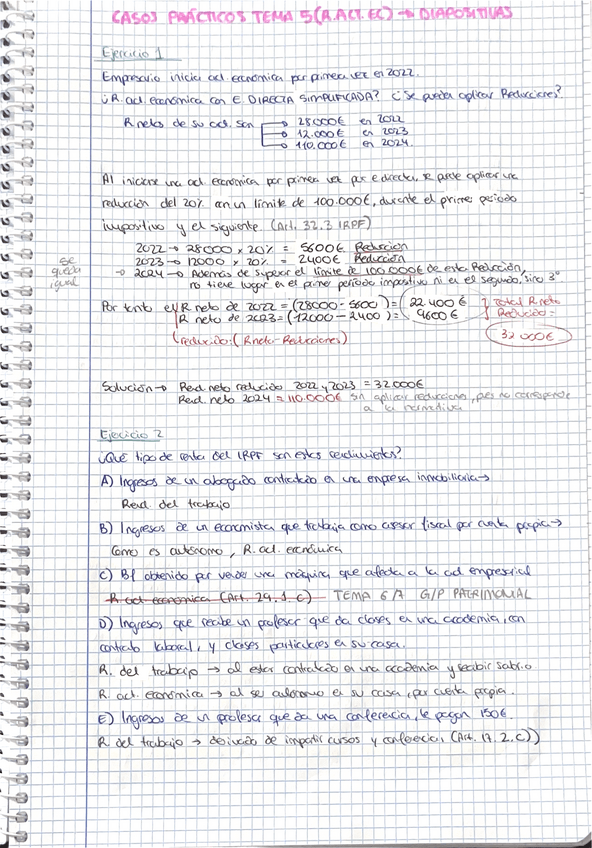 CASOS PRÁCTICOS TEMA 5 (R.ACT.EC) → DIAPOSITIVAS
Ejercicio 1
Empresario inicia act. económica por primera vez en 2022.
¿R. act económica con E. DIRECTA SIMPLIFICADA? ¿Se pueden aplicar Reducciones?
R netos de su act. son → 28000€ en 2022
→ 12.000€ en 2023
→ 110.000€ en 2024.
Al iniciarse una act. económica por primera vez por e directa, se puede aplicar una
reducción del 20% con un límite de 100.000€, durante el primer periodo
impositivo y el siguiente. (Art. 32.3 IRPF)
2022 → 28000 x 20% = 5600€ Reducción
2023 → 12000 x 20% = 2400€ Reducción
se queda igual → 2024 → Además de superar el límite de 100.000€ de esta Reducción,
no tiene lugar en el primer periodo impositivo ni en el segundo, sino 3º
Por tanto el R neto de 2022 = (28000 - 5600) = 22.400€ } Total R neto
R neto de 2023 = (12000 - 2400) = 9600€ Reducido =
reducido: (R neto - Reducciones) 32000€
Solución → Rend. neto reducido 2022 y 2023 = 32000€
Rend. neto 2024 = 110.000€ sin aplicar reducciones, pues no corresponde
a la normativa
Ejercicio 2
¿Qué tipo de renta del IRPF son estos rendimientos?
A) Ingresos de un abogado contratado en una empresa inmobiliaria →
Rend. del trabajo
B) Ingresos de un economista que trabaja como asesor fiscal por cuenta propia →
Como es autónomo, R. act. económica
C) Bf obtenido por vender una máquina que afecta a la act empresarial
R act económica (Art. 29.1.c) TEMA 6/7 G/P PATRIMONIAL
D) Ingresos que recibe un profesor que da clases en una academia, con
contrato laboral, y clases particulares en su casa.
R. del trabajo → al estar contratado en una academia y recibir salario
R. act. económica → al ser autónomo en su casa, por cuenta propia.
E) Ingresos de un profesor que da una conferencia, le pagan 150€.
R del trabajo → derivado de impartir cursos y conferencia, (Art. 17.2.c))